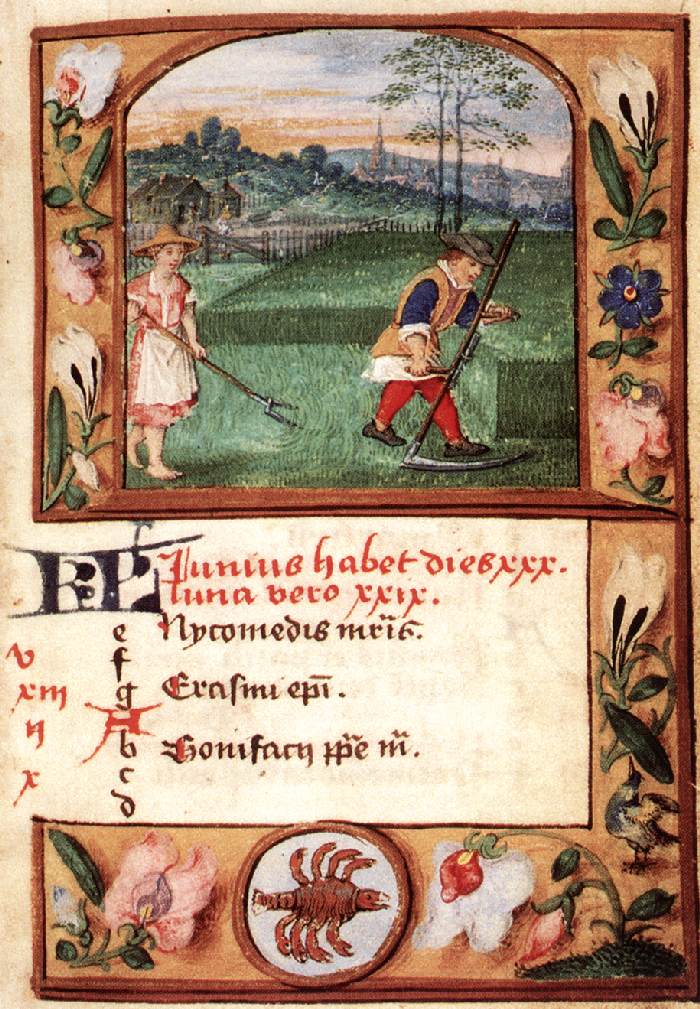 KL Junius habet dies xxx.
luna vero xxix.
e Nycomedis mr̄is.
v f
xiii g Erasmi epī.
A
ii b Bonifacij pp̄e m̄.
x c
d